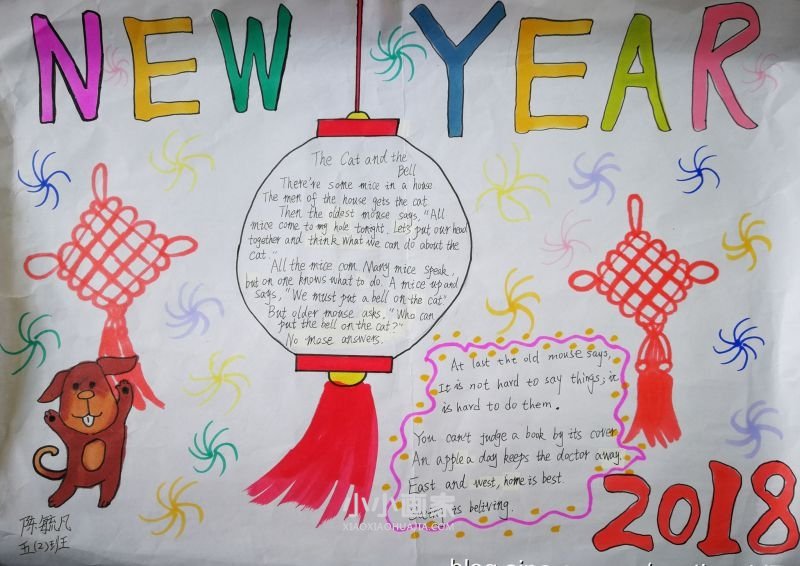 NEW YEAR
The Cat and the
Bell
There're some mice in a house
The men of the house gets the cat
Then the oldest mouse says, "All
mice come to my hole tonight. Let's put our head
together and think what we can do about the
cat."
All the mice com. Many mice speak,
but on one knows what to do. A mice up and
says, "We must put a bell on the cat"
But older mouse asks. "Who can
put the bell on the cat?"
No mose answers.
At last the old mouse says,
It is not hard to say things; it
is hard to do them.
You can't judge a book by its cover
An apple a day keeps the doctor away.
East and west, home is best.
is beliving.
2018
陈毓凡
五(2)班
小小画家
XIAOXIAOHUAJIA.COM